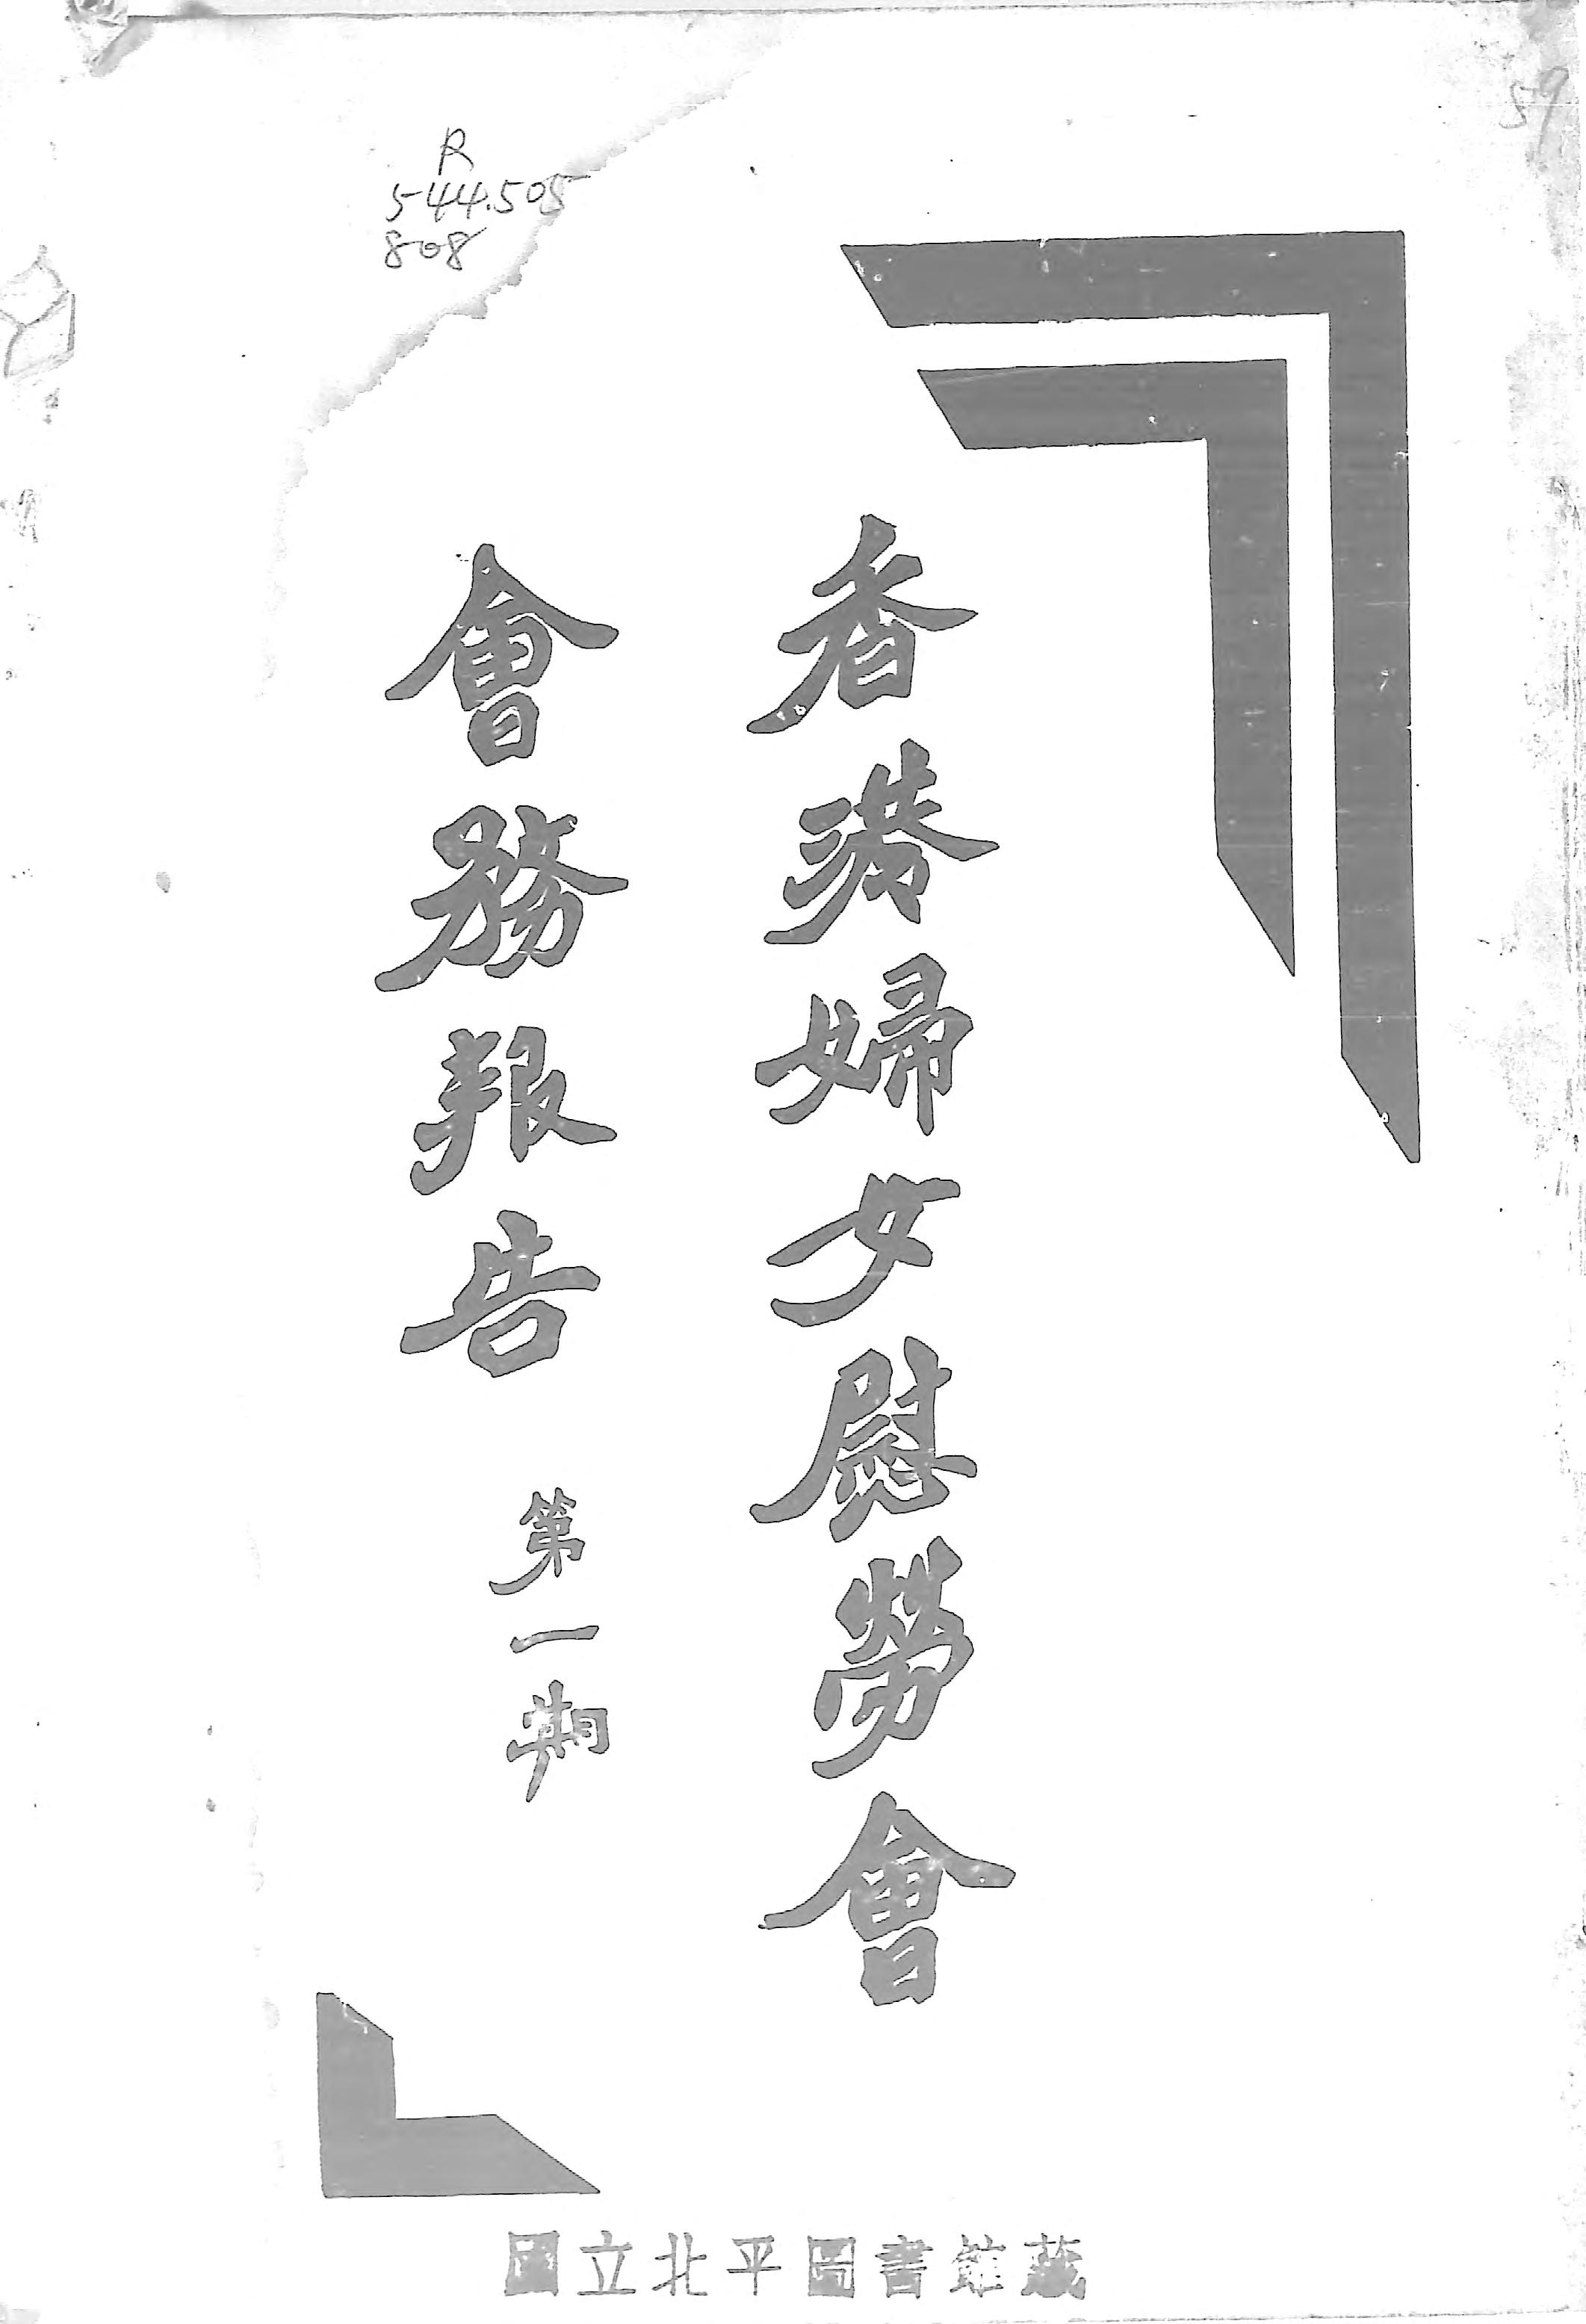 R
544.505
808
59
香港婦女慰勞會
會務報告
第一期
國立北平圖書館藏